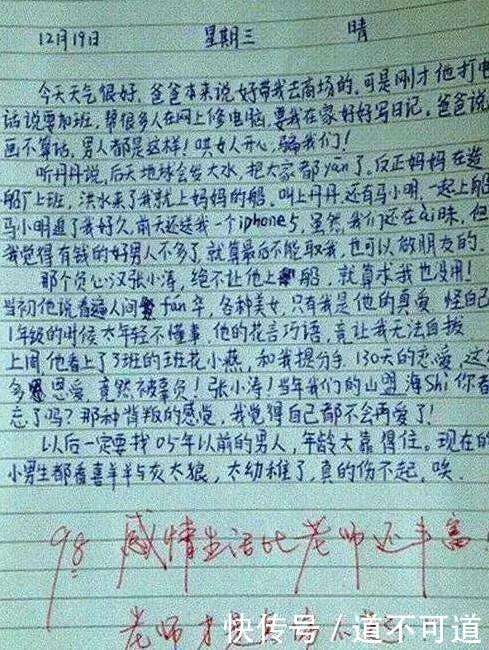 12月19日 星期三 晴
今天天气很好，爸爸本来说好带我去商场的，可是刚才他打电
话说要加班，帮很多人在网上修电脑，要我在家好好写日记，爸爸说
画不算话，男人都是这样！哄女人开心，骗我们！
听丹丹说，后天地球会发大水，把大家都yān了。反正妈妈在造
船厂上班，洪水来了我就上妈妈的船，叫上丹丹，还有马小明，一起上船
马小明追了我好久，前天还送我一个iphone5，虽然我们还在ài昧，但
我觉得有钱的好男人不多了，就算最后不能取我，也可以做朋友的。
那个负心汉张小涛，绝不让他上船，就算求我也没用！
当初他说看遍人间fán华，各种美女，只有我是他的真爱 怪自己
1年级的时候太年轻不懂事，他的花言巧语，竟让我无法自拔
上周，他看上了3班的班花小燕，和我提分手 130天的恋爱，这
多恩爱，竟然被辜负！张小涛！当年我们的山盟海shi你者
忘了吗？那种背叛的感觉，我觉得自己都不会再爱了！
以后一定要找05年以前的男人，年龄大靠得住。现在的
小男生都看喜羊羊与灰太狼，太幼稚了，真的伤不起，唉。
98 感情生活比老师还丰富
老师才是
快传号/道不可道